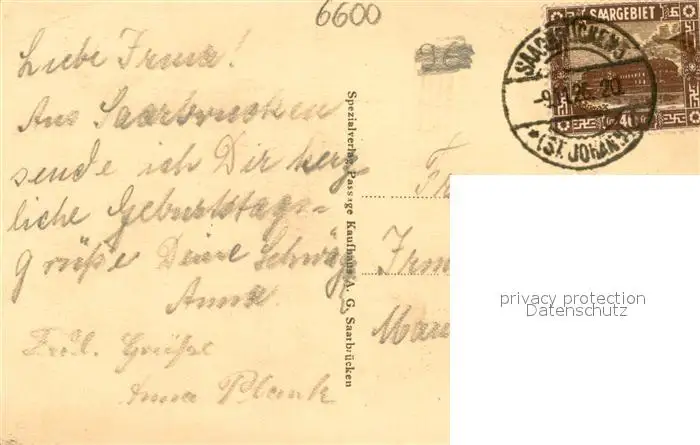 6600
96
Liebe Irma!
Aus Saarbrücken
sende ich Dir herz
liche Geburtstags-
grüße Deine Schwäg
Anna.
Frdl. Grüße
Anna Plank
Spezialverlag Passage Kaufhaus A. G. Saarbrücken
SAARGEBIET
40
SAARBRÜCKEN 3
20
*(ST. JOHANN)
Fr
Irm
privacy protection
Datenschutz